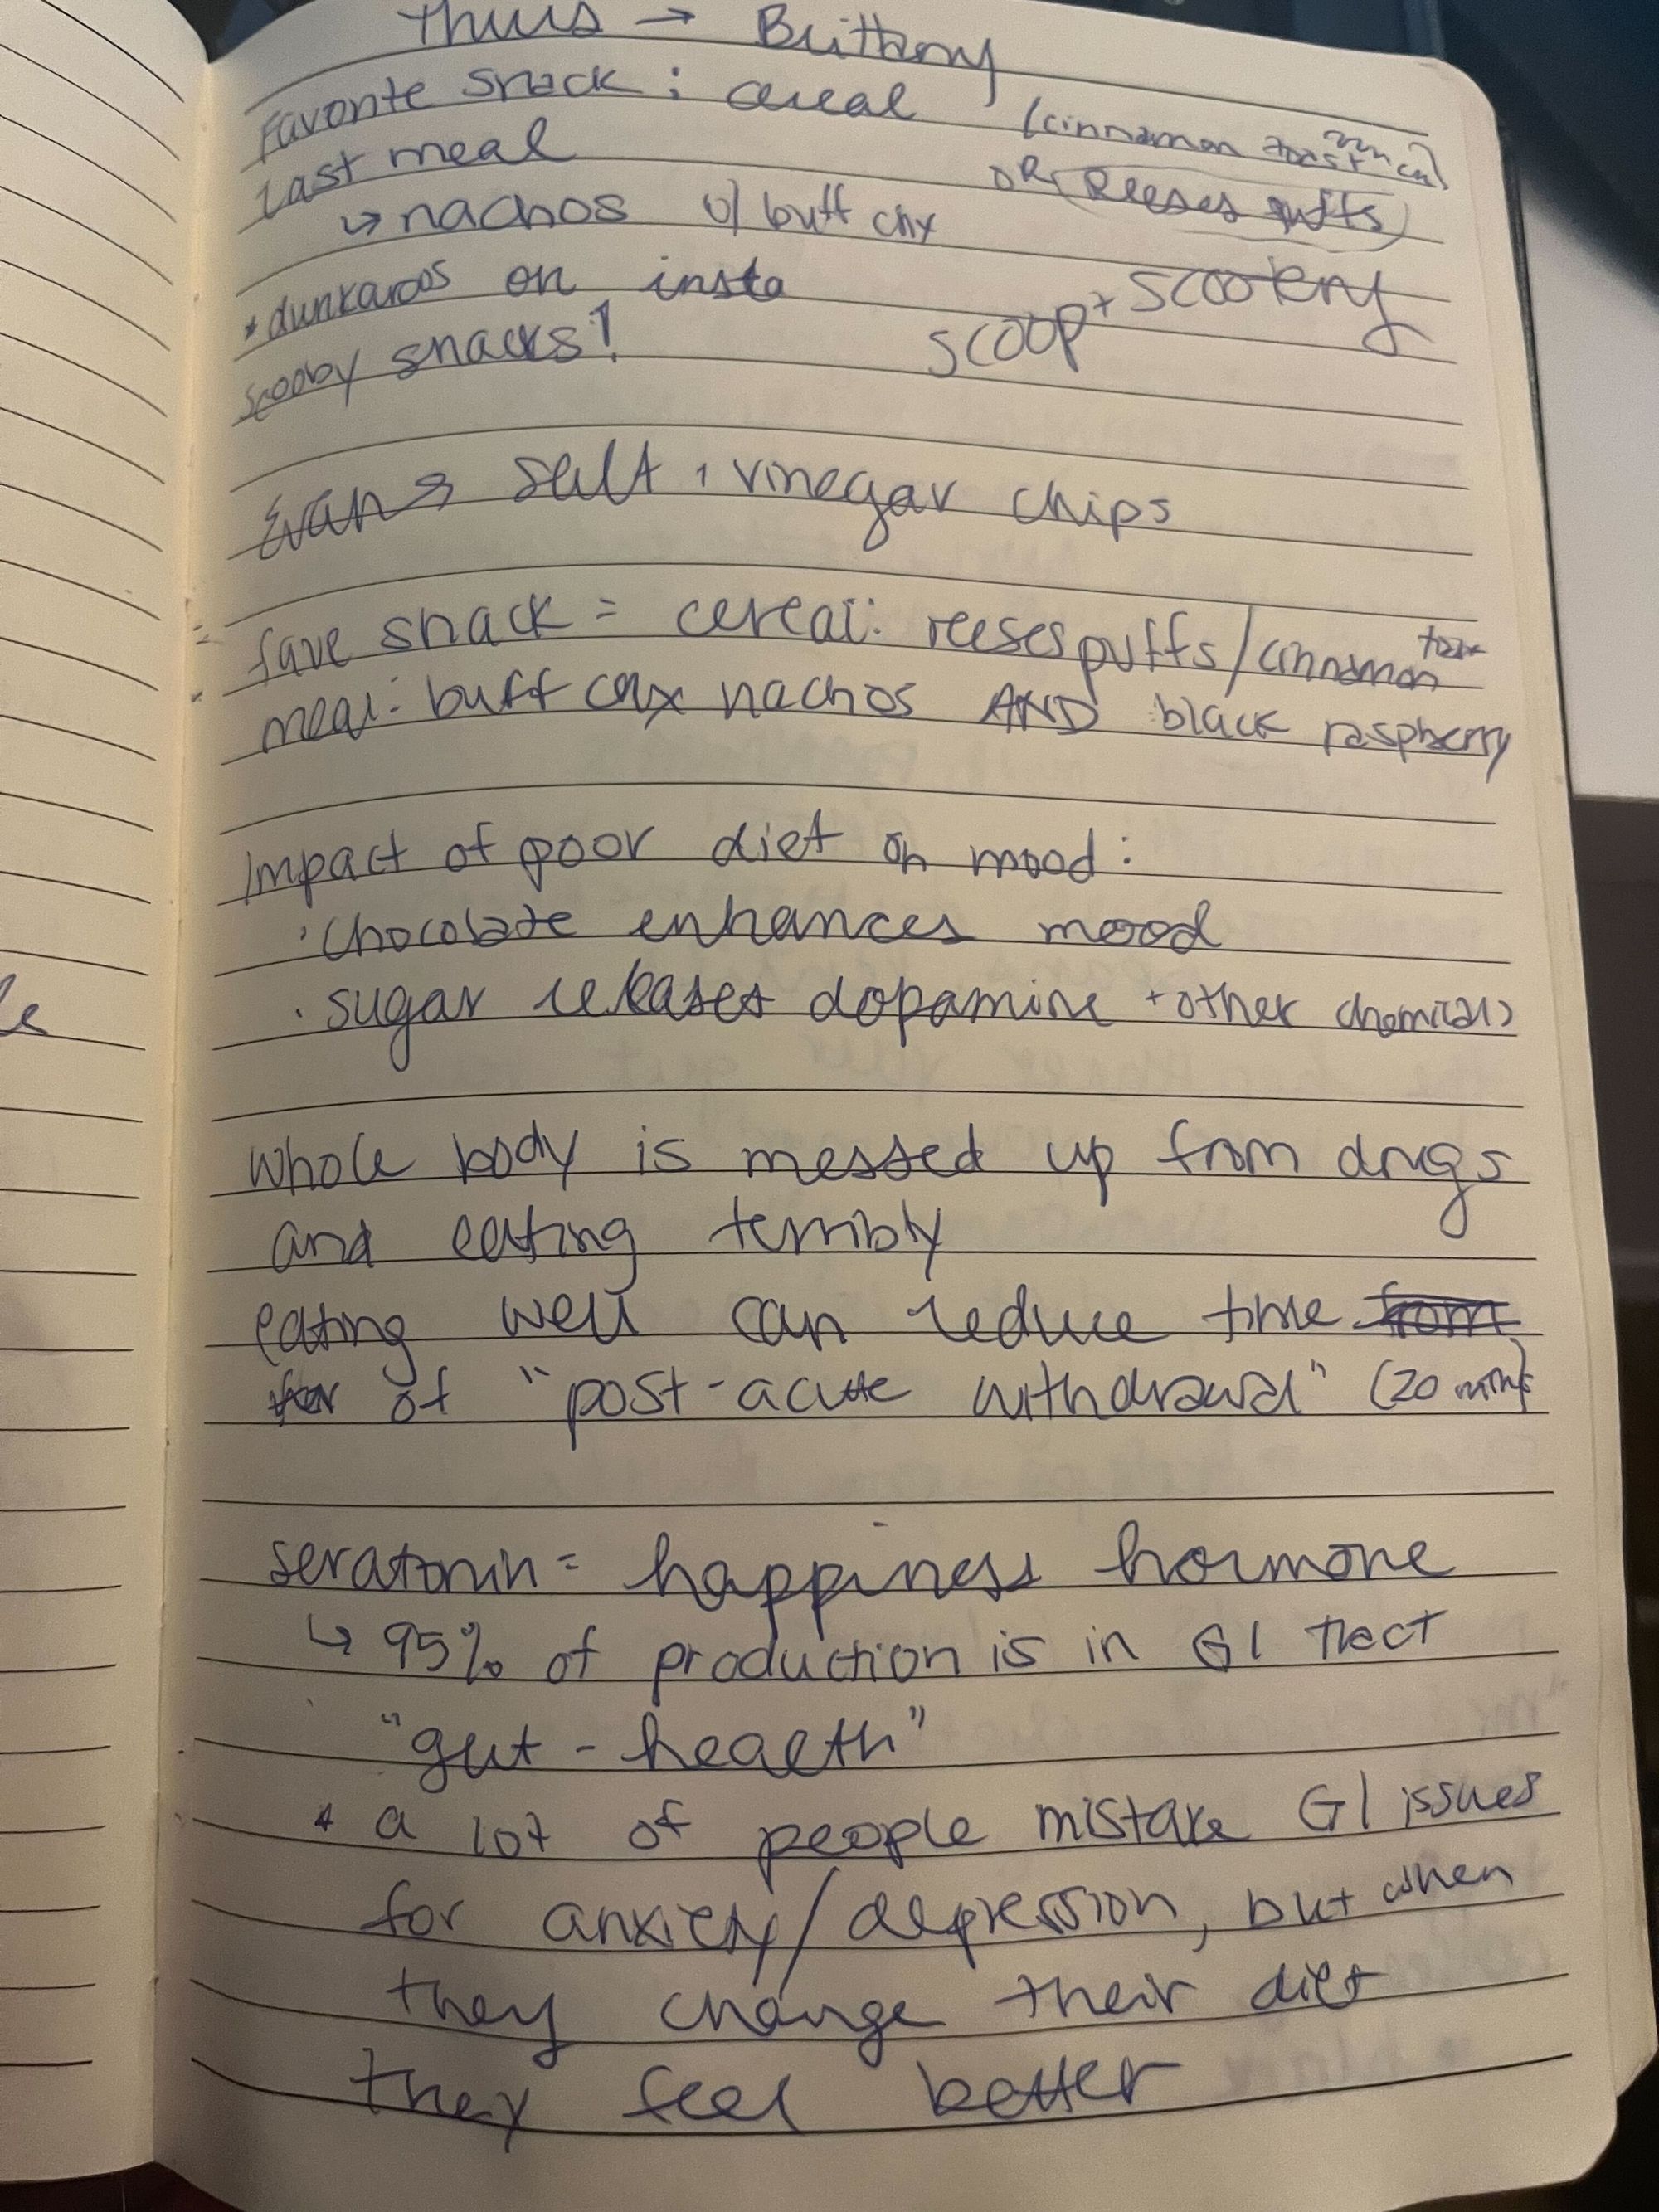 Thurs → Brittany
Favorite snack : cereal (cinnamon toast crunch)
OR (Reeses puffs)
Last meal
↳ nachos w/ buff chx
* dunkaroos on insta
scoop + scootery
scooby snacks!
Evan → salt + vinegar chips
fave snack = cereal: reeses puffs/cinnamon toast
meal: buff chx nachos AND black raspberry
Impact of poor diet on mood:
· chocolate enhances mood
· sugar releases dopamine + other chemicals
whole body is messed up from drugs
and eating terribly
eating well can reduce time from
of "post-acute withdrawal" (20 mths)
seratonin = happiness hormone
↳ 95% of production is in GI tract
"gut - health"
* a lot of people mistake GI issues
for anxiety/depression, but when
they change their diet
they feel better